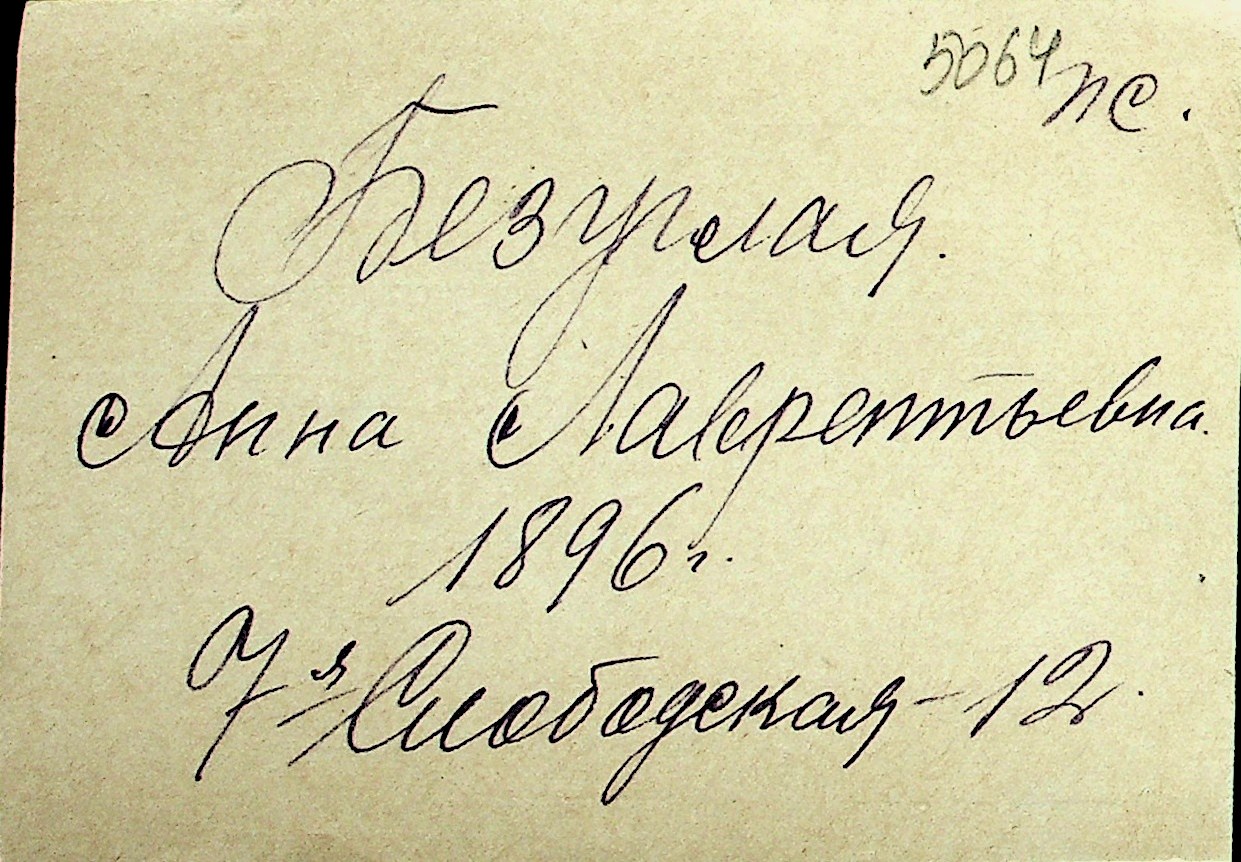 5064 пс.
Безуглая.
Анна Лаврентьевна.
1896 г.
7я Слободская - 12.